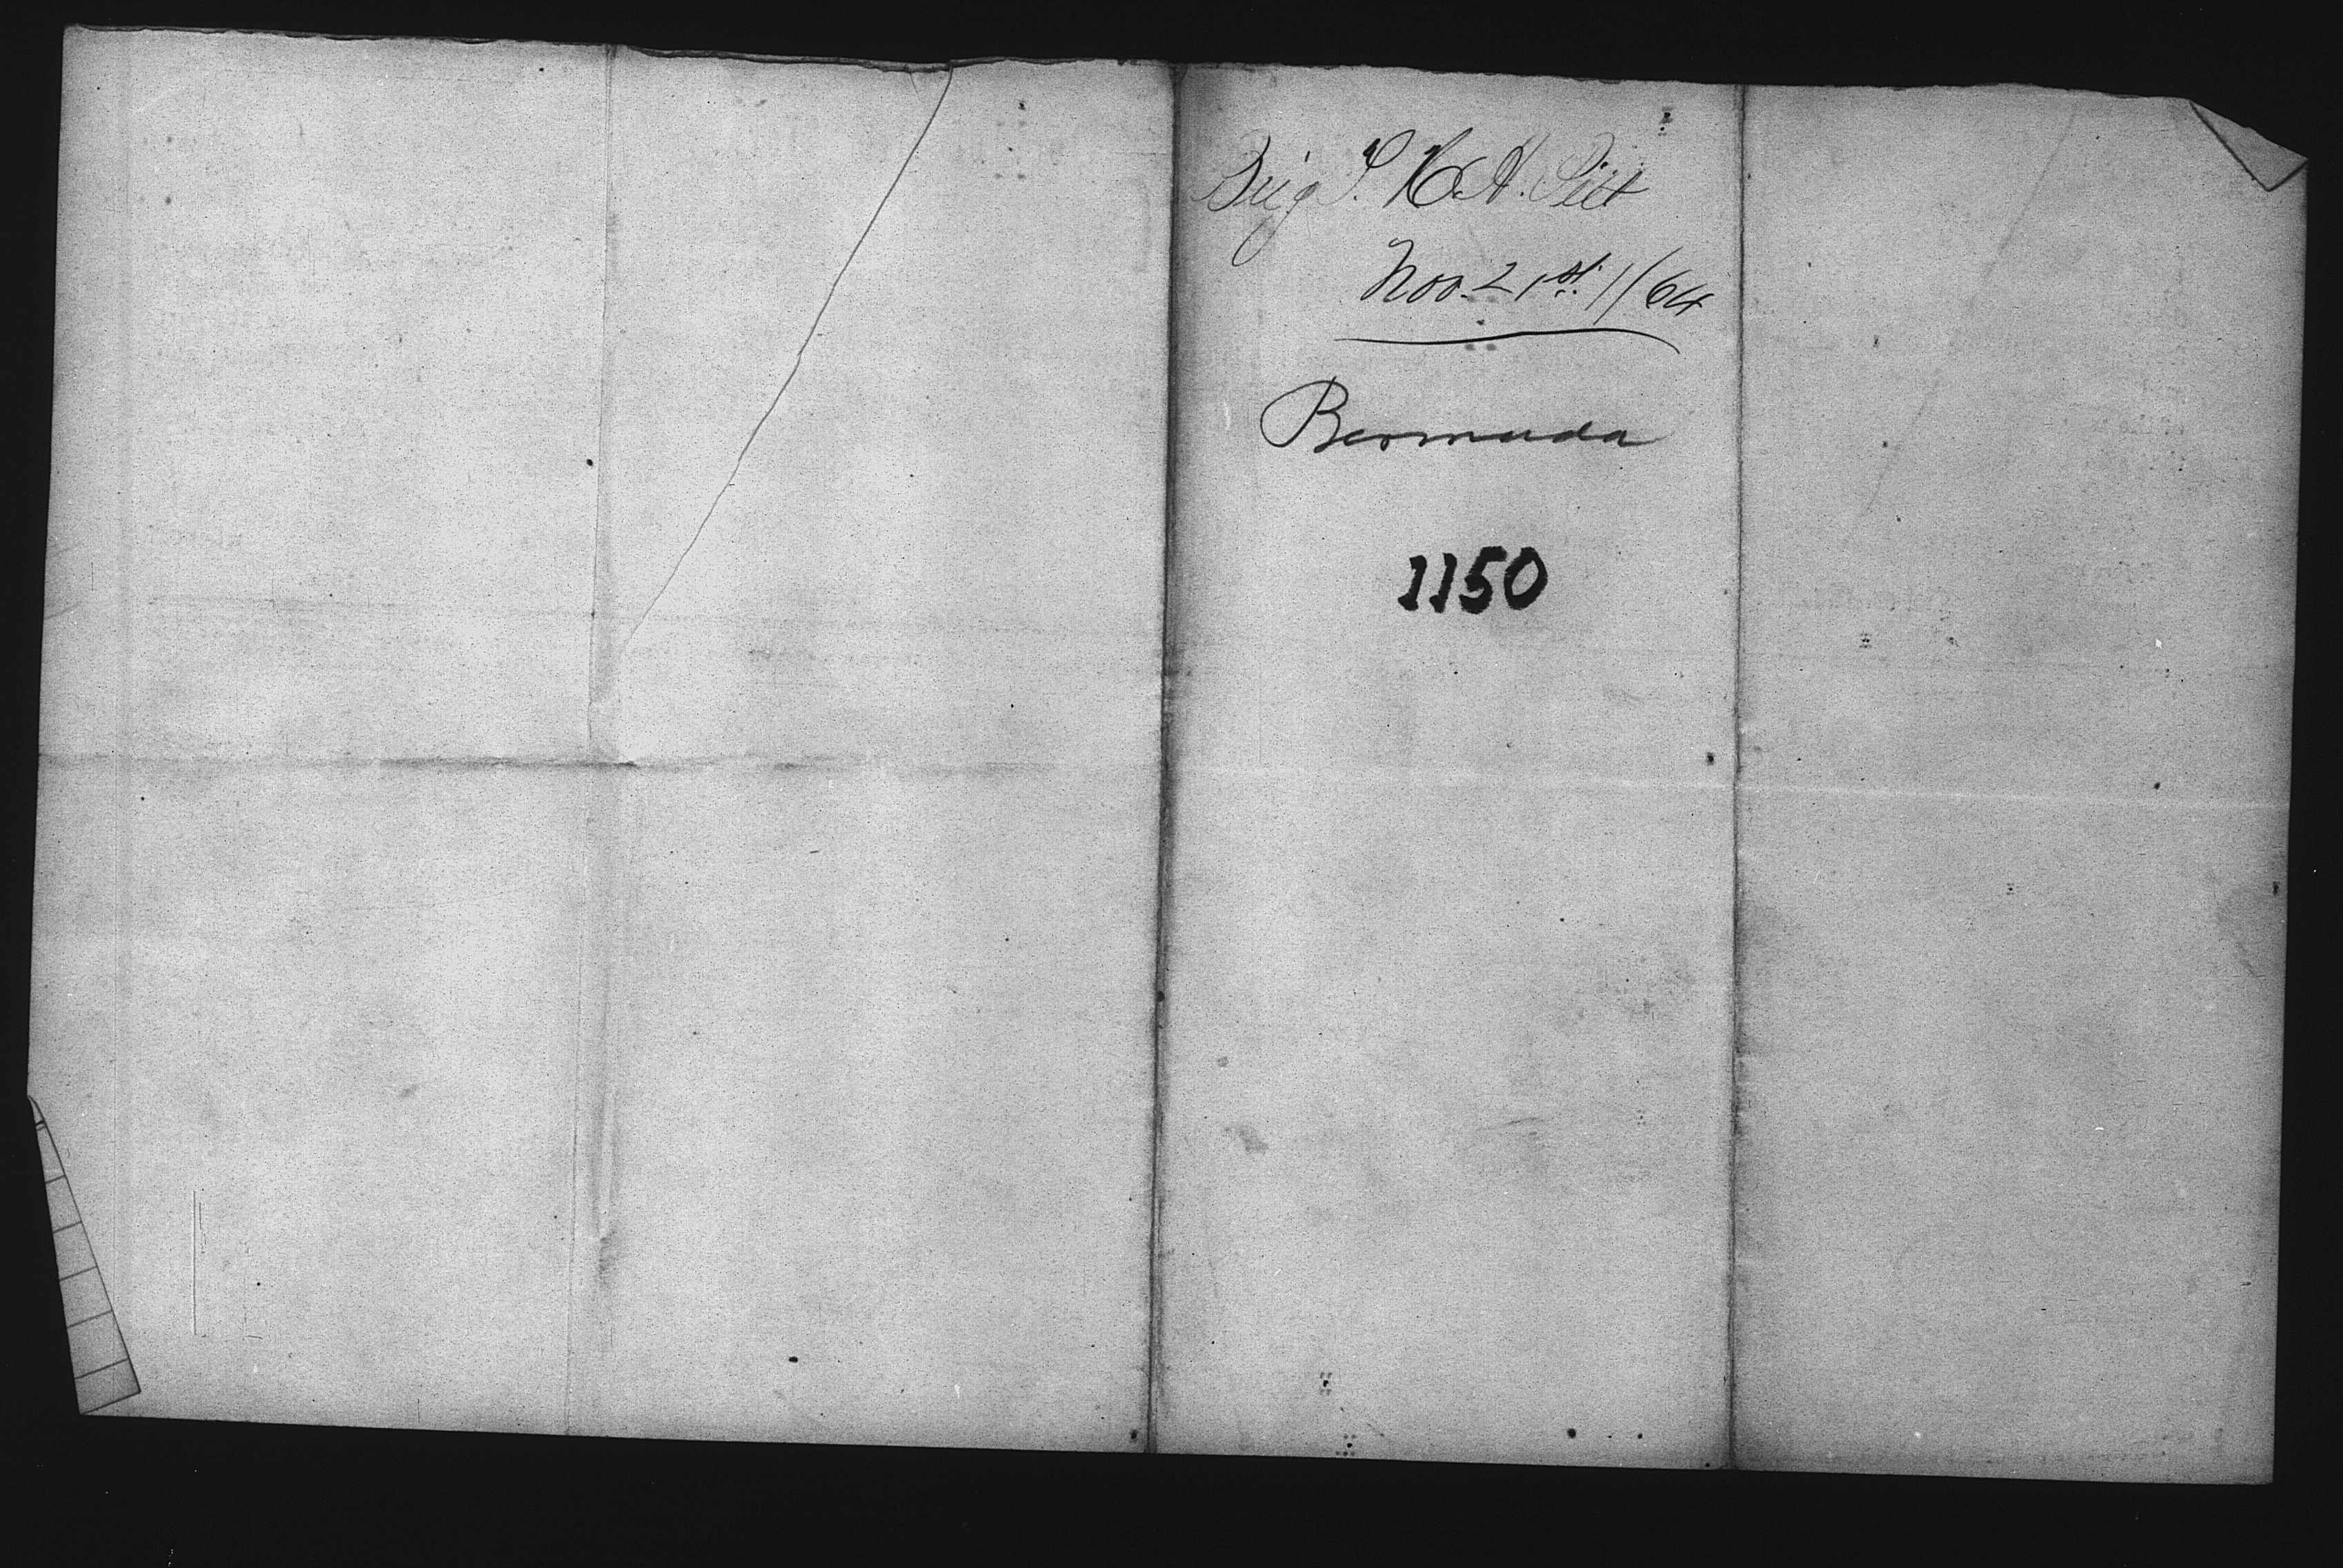 Brig T. H. A. Pitt
Nov. 21st 1/64
Bermuda
1150